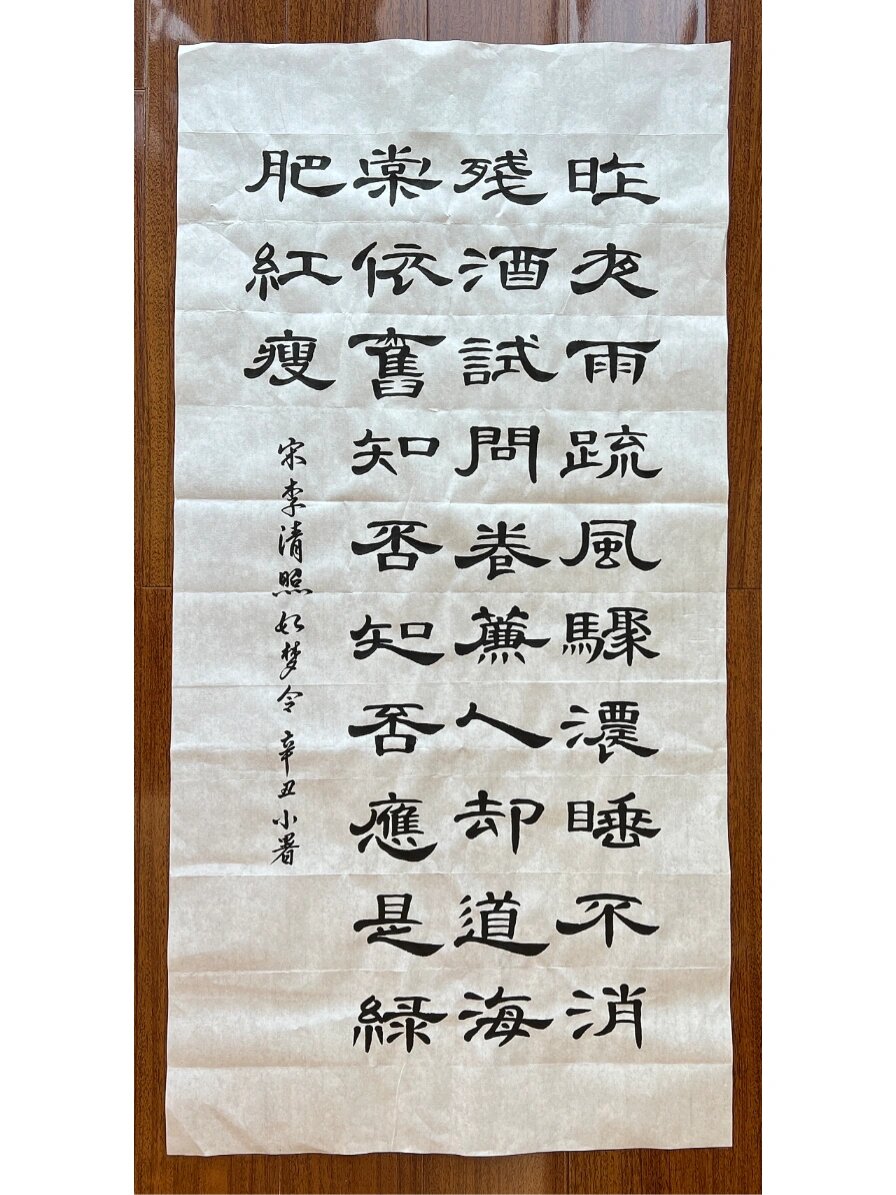 昨夜雨疏風驟濃睡不消
殘酒試問卷簾人却道海
棠依舊知否知否應是綠
肥紅瘦
宋李清照如梦令辛丑小暑